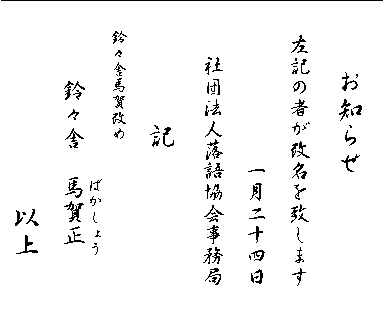 お知らせ
左記の者が改名を致します
一月二十四日
社団法人落語協会事務局
記
鈴々舎馬賀改め
鈴々舎 馬賀正
ばかしょう
以上